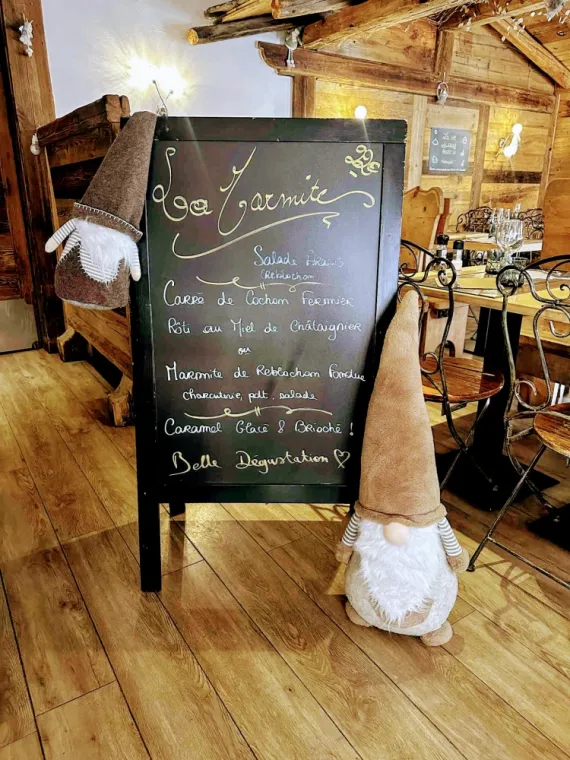 La Marmite
Salade
(Reblochon
Carré de Cochon Fermier
Rôti au Miel de Châtaignier
ou
Marmite de Reblochon Fondue
charcuterie, pdt, salade
Caramel Glacé & Brioché !
Belle Dégustation ♡